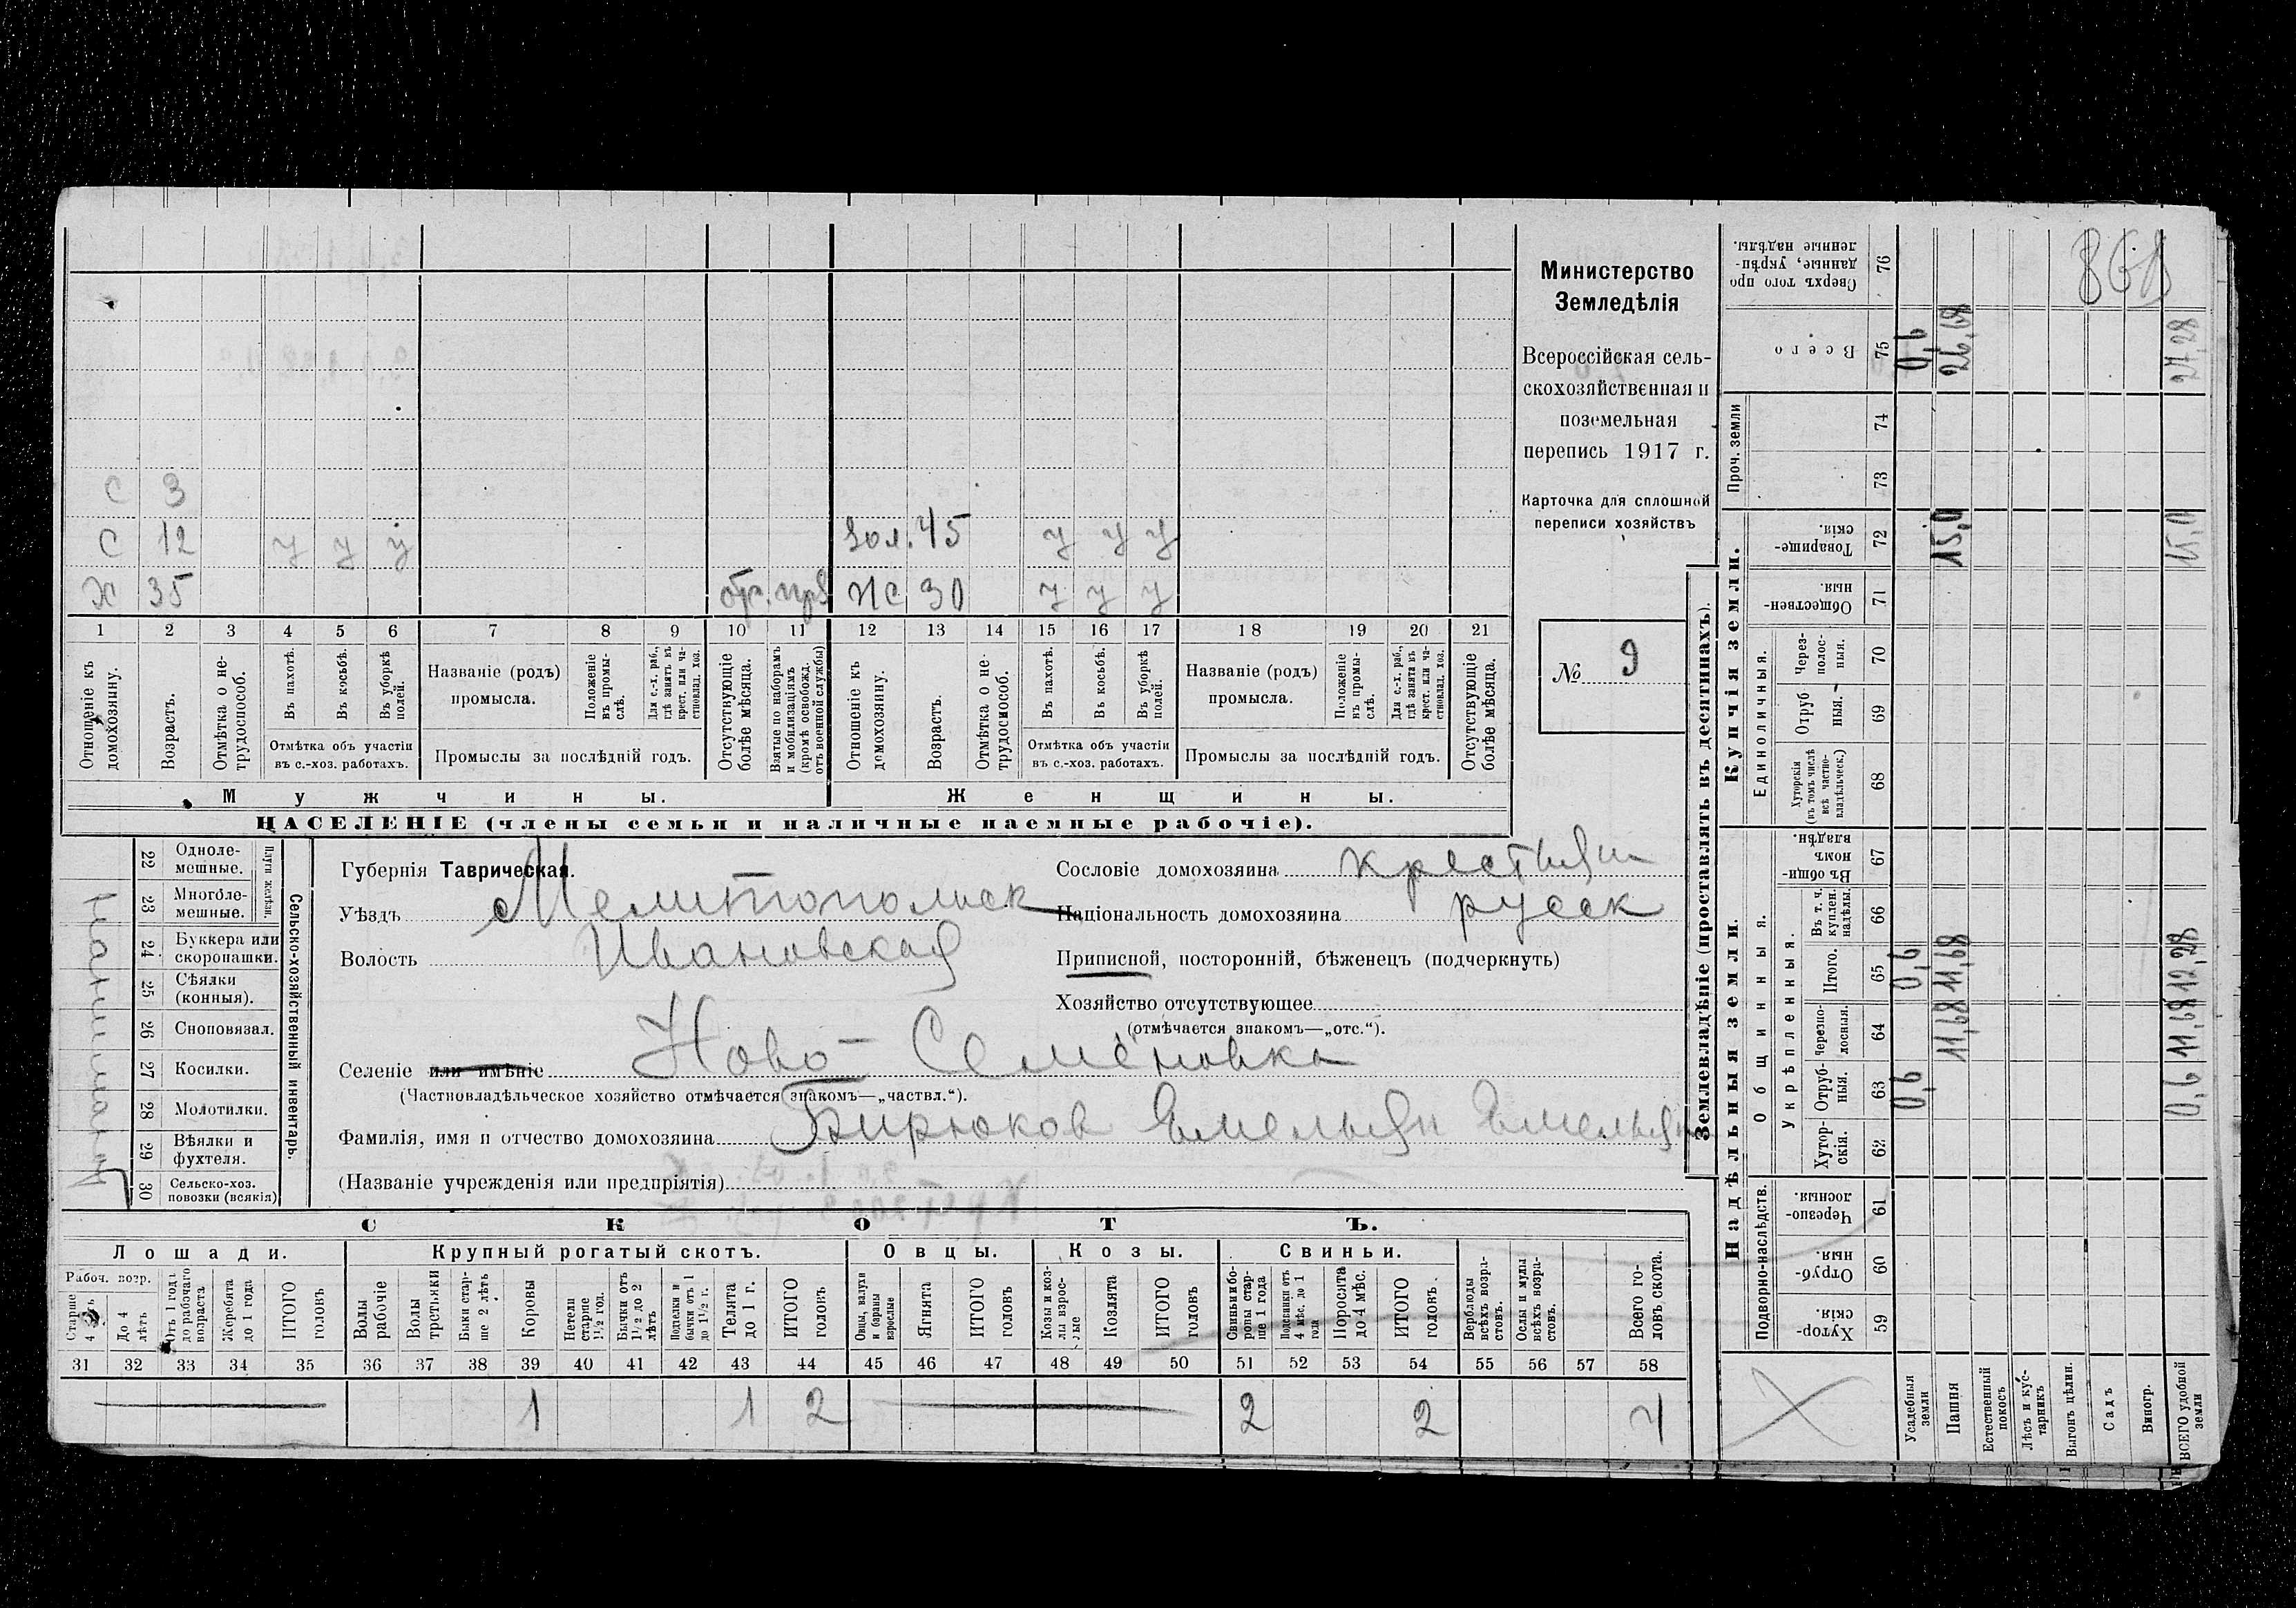 868
Министерство
Земледѣлія
Всероссійская сель-
скохозяйственная и
поземельная
перепись 1917 г.
Карточка для сплошной
переписи хозяйствъ
№ 9
С 3
С 12 у у у Зол. 45 у у у
Х 35 30 у у у
1 2 3 4 5 6 7 8 9 10 11 12 13 14 15 16 17 18 19 20 21
Отношеніе къ домохозяину.
Возрастъ.
Отмѣтка о не-трудоспособ.
Въ пахотѣ.
Въ косьбѣ.
Въ уборкѣ полей.
Отмѣтка объ участіи
въ с.-хоз. работахъ.
Названіе (родъ)
промысла.
Положеніе въ промы-слѣ.
Для с.-х. раб., гдѣ занятъ въ крест. или ча-стновлад. хоз.
Промыслы за послѣдній годъ.
Отсутствующіе болѣе мѣсяца.
Взятые по наборамъ и мобилизаціямъ (кромѣ освобожд. отъ военной службы)
Отношеніе къ домохозяину.
Возрастъ.
Отмѣтка о не-трудоспособ.
Въ пахотѣ.
Въ косьбѣ.
Въ уборкѣ полей.
Отмѣтка объ участіи
въ с.-хоз. работахъ.
Названіе (родъ)
промысла.
Положеніе въ промы-слѣ.
Для с.-х. раб., гдѣ занята въ крест. или ча-стновлад. хоз.
Промыслы за послѣдній годъ.
Отсутствующіе болѣе мѣсяца.
Мужчины. Женщины.
НАСЕЛЕНІЕ (члены семьи и наличные наемные рабочіе).
Сельско-хозяйственный инвентарь.
Плуги желѣзн.
22 Одноле-мешные.
23 Многоле-мешные.
24 Буккера или скоропашки.
25 Сѣялки (конныя).
26 Сноповязал.
27 Косилки.
28 Молотилки.
29 Вѣялки и фухтеля.
30 Сельско-хоз. повозки (всякія)
Губернія Таврическая.
Уѣздъ Мелитопольск
Волость Ивановская
Селеніе или имѣніе Ново-Семёновка
(Частновладѣльческое хозяйство отмѣчается знакомъ—„частвл.“).
Фамилія, имя и отчество домохозяина Бирюков Емельян Емельян
(Названіе учрежденія или предпріятія)
Сословіе домохозяина крестьян
Національность домохозяина русск
Приписной, посторонній, бѣженецъ (подчеркнуть)
Хозяйство отсутствующее
(отмѣчается знакомъ—„отс.“).
СКОТЪ.
Лошади. Крупный рогатый скотъ. Овцы. Козы. Свиньи.
Рабоч. возр.
Старше 4 лѣтъ
До 4 лѣтъ
Отъ 1 года до рабочаго возраста
Жеребята до 1 года
ИТОГО головъ
Волы рабочіе
Волы третьяки
Быки стар-ше 2 лѣтъ
Коровы
Нетели старше 1½ год.
Бычки отъ 1½ до 2 лѣтъ
Подтелки и бычки отъ 1 до 1½ г.
Телята до 1 г.
ИТОГО головъ
Овцы, валухи и бараны взрослые
Ягнята
ИТОГО головъ
Козы и коз-лы взрос-лые
Козлята
ИТОГО головъ
Свиньи и бо-ровы стар-ше 1 года
Подсвинки отъ 4 мѣс. до 1 года
Поросята до 4 мѣс.
ИТОГО головъ.
Верблюды всѣхъ возра-стовъ.
Ослы и мулы всѣхъ возра-стовъ.
Всего го-ловъ скота.
31 32 33 34 35 36 37 38 39 40 41 42 43 44 45 46 47 48 49 50 51 52 53 54 55 56 57 58
1 1 2 2 2 4
Землевладѣніе (проставлять въ десятинахъ).
Надѣльныя земли. Купчія земли.
Подворно-наслѣдств.
Общинныя.
Укрѣпленныя.
Единоличныя.
Проч. земли
Хутор-скія. 59
Отруб-ныя. 60
Черезпо-лосныя. 61
Хутор-скія. 62
Отруб-ныя. 63 0,6
Черезпо-лосныя. 64 11,68 11,68
Итого. 65 0,6 11,68 12,28
Въ т. ч. куплен. надѣлы. 66
Въ общи-номъ владѣн. 67
Хуторскія (въ томъ числѣ всѣ частно-владѣльческ.) 68
Отруб ныя. 69
Через-полос-ныя. 70
Обществен-ныя. 71
Товарище-скія. 72 15,0 15,0
73
74
Всего 75 0,6 26,68 27,28
Сверхъ того про данные, укрѣп-ленные надѣлы. 76
Усадебныя земли
Пашня
Естественный покосъ
Лѣсъ и кус-тарникъ
Выгонъ цѣлин.
Садъ
Виногр.
ВСЕГО удобной земли